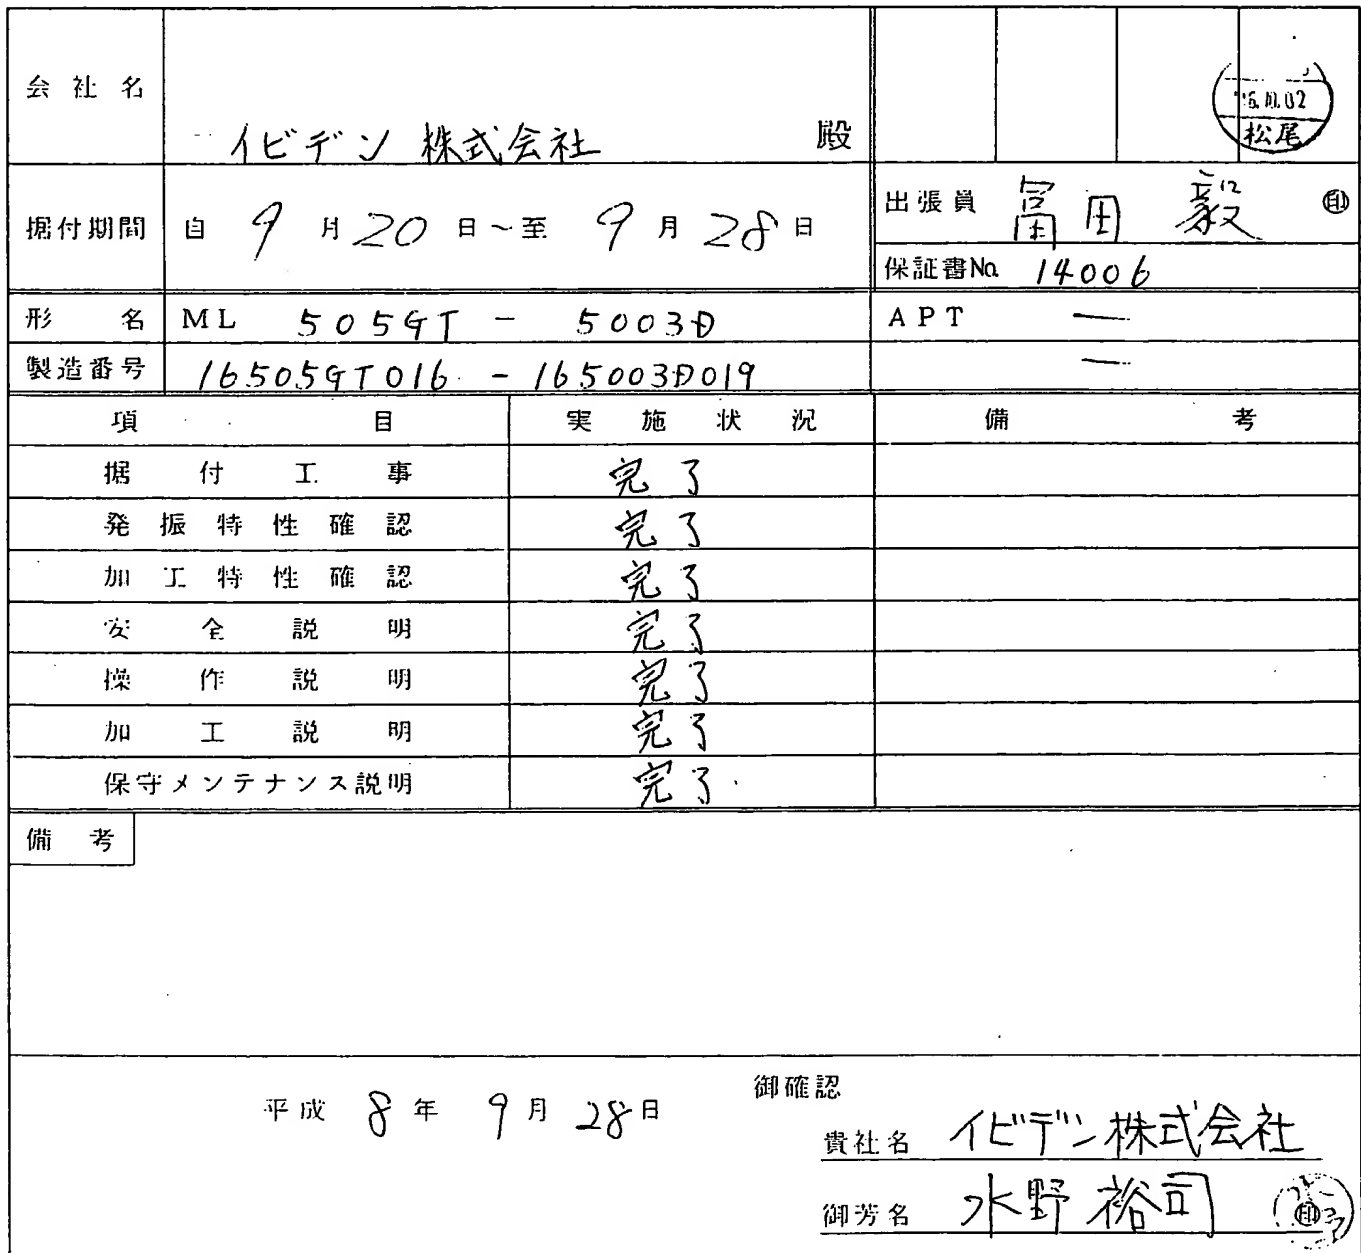 会社名 イビデン 株式会社 殿
松尾
据付期間 自 9月20日~至 9月28日
出張員 冨田 毅 ㊞
保証書No. 14006
形名 ML 505GT - 5003D
APT —
製造番号 16505GT016 - 165003D019
—
項目 実施状況 備考
据付工事 完了
発振特性確認 完了
加工特性確認 完了
安全説明 完了
操作説明 完了
加工説明 完了
保守メンテナンス説明 完了
備考
平成 8年 9月 28日
御確認
貴社名 イビデン株式会社
御芳名 水野 裕司 ㊞